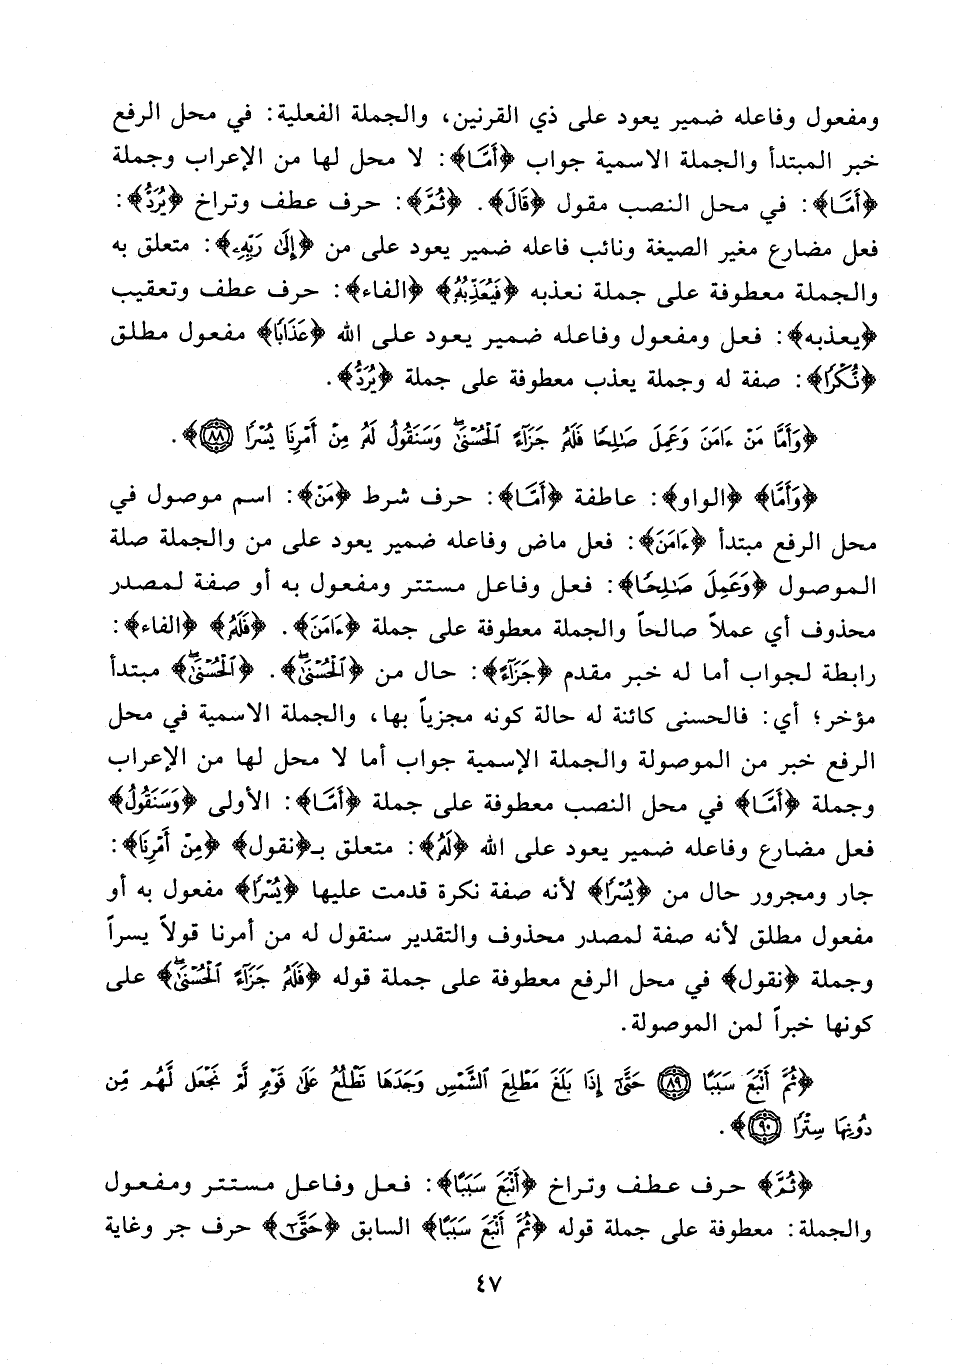 ومفعول وفاعله ضمير يعود على ذي القرنين، والجملة الفعلية: في محل الرفع
خبر المبتدأ والجملة الاسمية جواب ﴿أَمَّا﴾: لا محل لها من الإعراب وجملة
﴿أَمَّا﴾: في محل النصب مقول ﴿قَالَ﴾. ﴿ثُمَّ﴾: حرف عطف وتراخ ﴿يُرَدُّ﴾:
فعل مضارع مغير الصيغة ونائب فاعله ضمير يعود على من ﴿إِلَى رَبِّهِۦ﴾: متعلق به
والجملة معطوفة على جملة نعذبه ﴿فَيُعَذِّبُهُۥ﴾ ﴿الفاء﴾: حرف عطف وتعقيب
﴿يعذبه﴾: فعل ومفعول وفاعله ضمير يعود على الله ﴿عَذَابًا﴾ مفعول مطلق
﴿نُّكْرًا﴾: صفة له وجملة يعذب معطوفة على جملة ﴿يُرَدُّ﴾.
﴿وَأَمَّا مَنْ ءَامَنَ وَعَمِلَ صَٰلِحًا فَلَهُۥ جَزَآءً الْحُسْنَىٰۖ وَسَنَقُولُ لَهُۥ مِنْ أَمْرِنَا يُسْرًا ﴿٨٨﴾﴾.
﴿وَأَمَّا﴾ ﴿الواو﴾: عاطفة ﴿أَمَّا﴾: حرف شرط ﴿مَنْ﴾: اسم موصول في
محل الرفع مبتدأ ﴿ءَامَنَ﴾: فعل ماض وفاعله ضمير يعود على من والجملة صلة
الموصول ﴿وَعَمِلَ صَٰلِحًا﴾: فعل وفاعل مستتر ومفعول به أو صفة لمصدر
محذوف أي عملاً صالحاً والجملة معطوفة على جملة ﴿ءَامَنَ﴾. ﴿فَلَهُۥ﴾ ﴿الفاء﴾:
رابطة لجواب أما له خبر مقدم ﴿جَزَآءً﴾: حال من ﴿الْحُسْنَىٰۖ﴾. ﴿الْحُسْنَىٰۖ﴾ مبتدأ
مؤخر؛ أي: فالحسنى كائنة له حالة كونه مجزياً بها، والجملة الاسمية في محل
الرفع خبر من الموصولة والجملة الإسمية جواب أما لا محل لها من الإعراب
وجملة ﴿أَمَّا﴾ في محل النصب معطوفة على جملة ﴿أَمَّا﴾: الأولى ﴿وَسَنَقُولُ﴾
فعل مضارع وفاعله ضمير يعود على الله ﴿لَهُۥ﴾: متعلق بـ﴿نقول﴾ ﴿مِنْ أَمْرِنَا﴾:
جار ومجرور حال من ﴿يُسْرًا﴾ لأنه صفة نكرة قدمت عليها ﴿يُسْرًا﴾ مفعول به أو
مفعول مطلق لأنه صفة لمصدر محذوف والتقدير سنقول له من أمرنا قولاً يسراً
وجملة ﴿نقول﴾ في محل الرفع معطوفة على جملة قوله ﴿فَلَهُۥ جَزَآءً الْحُسْنَىٰۖ﴾ على
كونها خبراً لمن الموصولة.
﴿ثُمَّ أَتْبَعَ سَبَبًا ﴿٨٩﴾ حَتَّىٰٓ إِذَا بَلَغَ مَطْلِعَ الشَّمْسِ وَجَدَهَا تَطْلُعُ عَلَىٰ قَوْمٍ لَّمْ نَجْعَل لَّهُم مِّن
دُونِهَا سِتْرًا ﴿٩٠﴾﴾.
﴿ثُمَّ﴾ حرف عطف وتراخ ﴿أَتْبَعَ سَبَبًا﴾: فعل وفاعل مستتر ومفعول
والجملة: معطوفة على جملة قوله ﴿ثُمَّ أَتْبَعَ سَبَبًا﴾ السابق ﴿حَتَّىٰٓ﴾ حرف جر وغاية
٤٧